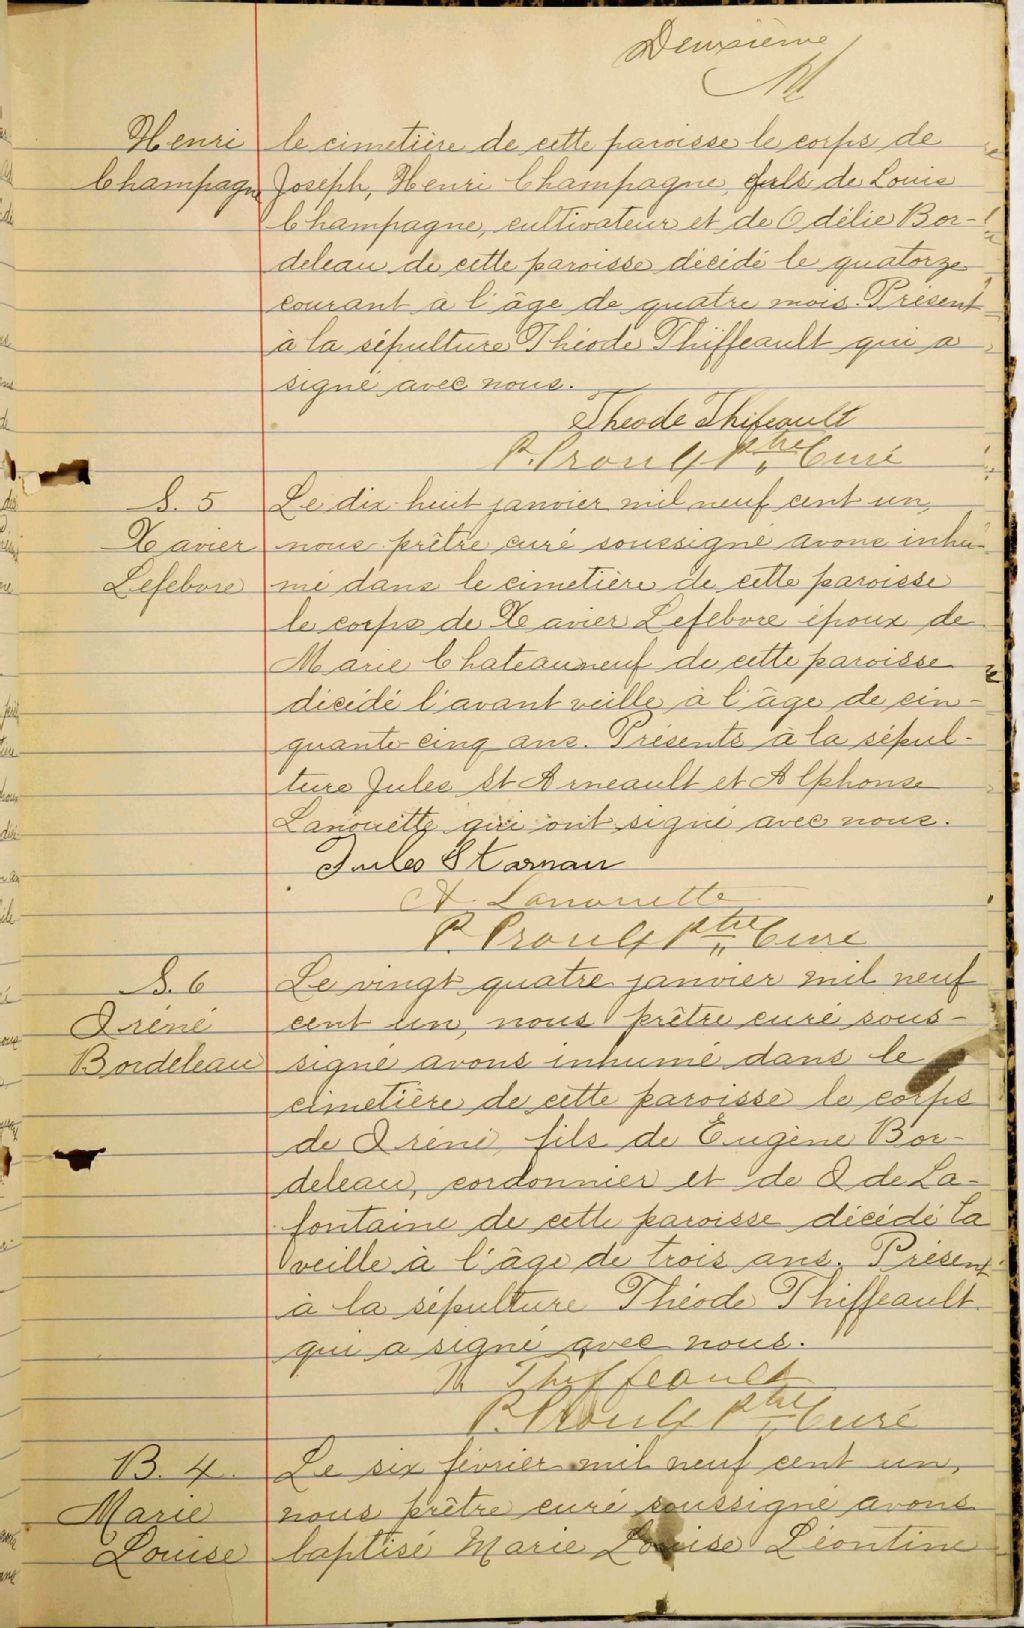 Deuxième
Henri
Champagne
le cimetière de cette paroisse le corps de
Joseph, Henri Champagne, fils de Louis
Champagne, cultivateur et de Odélie Bor-
deleau de cette paroisse décédé le quatorze
courant à l'âge de quatre mois. Présent
à la sépulture Théode Thiffeault qui a
signé avec nous.
Theode Thifeault
P. Proulx Ptre Curé
S. 5
Xavier
Lefebvre
Le dix-huit janvier mil neuf cent un,
nous prêtre curé soussigné avons inhu-
mé dans le cimetière de cette paroisse
le corps de Xavier Lefebvre époux de
Marie Chateauneuf de cette paroisse
décédé l'avant veille à l'âge de cin-
quante-cinq ans. Présents à la sépul-
ture Jules St Arneault et Alphonse
Lanouette qui ont signé avec nous.
Jules Starnau
A. Lanouette
P. Proulx Ptre Curé
S. 6
Iréné
Bordeleau
Le vingt quatre janvier mil neuf
cent un, nous prêtre curé sous-
signé avons inhumé dans le
cimetière de cette paroisse le corps
de Iréné, fils de Eugène Bor-
deleau, cordonnier et de Ida La-
fontaine de cette paroisse décédé la
veille à l'âge de trois ans. Présent
à la sépulture Théode Thiffeault
qui a signé avec nous.
Th Thiffeault
P. Proulx Ptre Curé
B. 4.
Marie
Louise
Le six février mil neuf cent un,
nous prêtre curé soussigné avons
baptisé Marie Louise Léontine